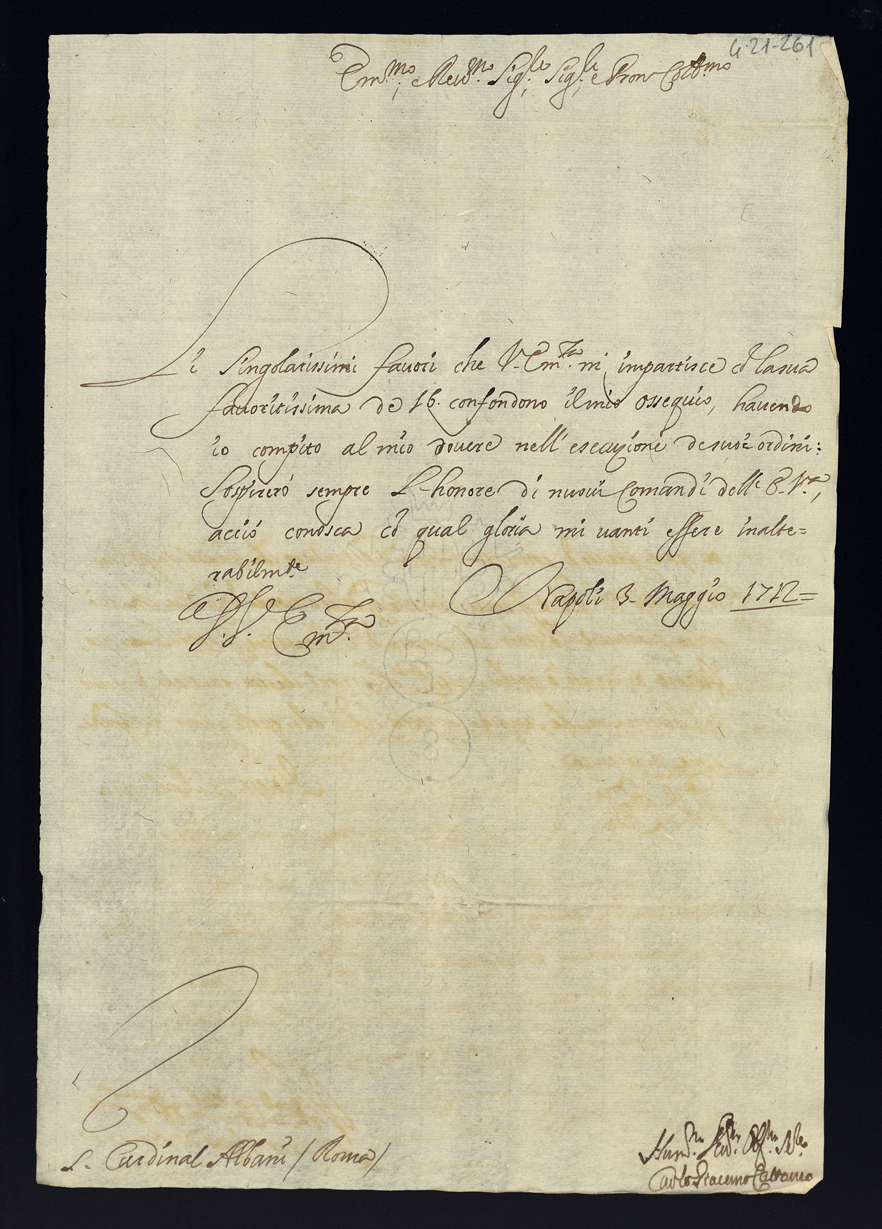 4-21-261
Em.mo, e Reu.mo Sig.re, Sig.re, e Pron Col.mo
Li singolarissimi fauori che V. Em.za mi impartisce cõ la sua
fauoritissima de 16. confondono il mio ossequio, hauendo
io compito al mio douere nell' esecuzione de suoi ordini:
Sospireró sempre L'honore di nuoui Comandi dell' E. V.ra,
acció conosca cõ qual gloria mi uanti essere inalte=
rabilm.te
D. V. Em.za
Napoli 3. Maggio 1712=
S. Cardinal Albani / Roma /
Hum.mo
Carlo Giacomo Cattaneo